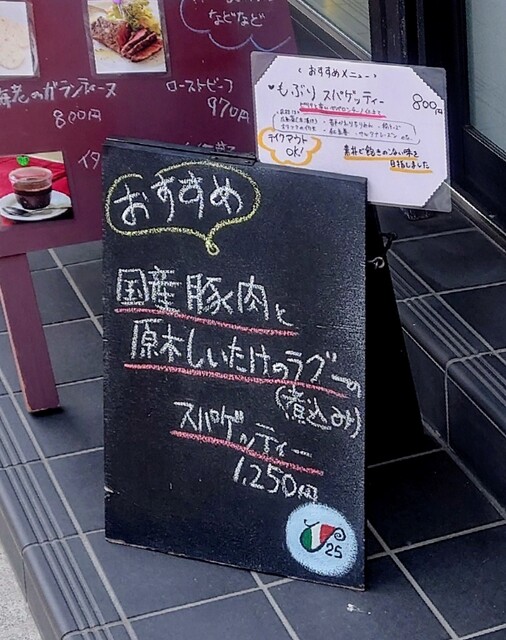 などなど
海老のガランティーヌ
800円
ローストビーフ
970円
イタ
(おすすめメニュー)
♥もぶり スパゲッティー
800円
テイクアウト
OK!
素朴で飽きのこない味を
目指しました
おすすめ
国産豚肉と
原木しいたけのラグーの
(煮込み)
スパゲッティー
1,250円
25